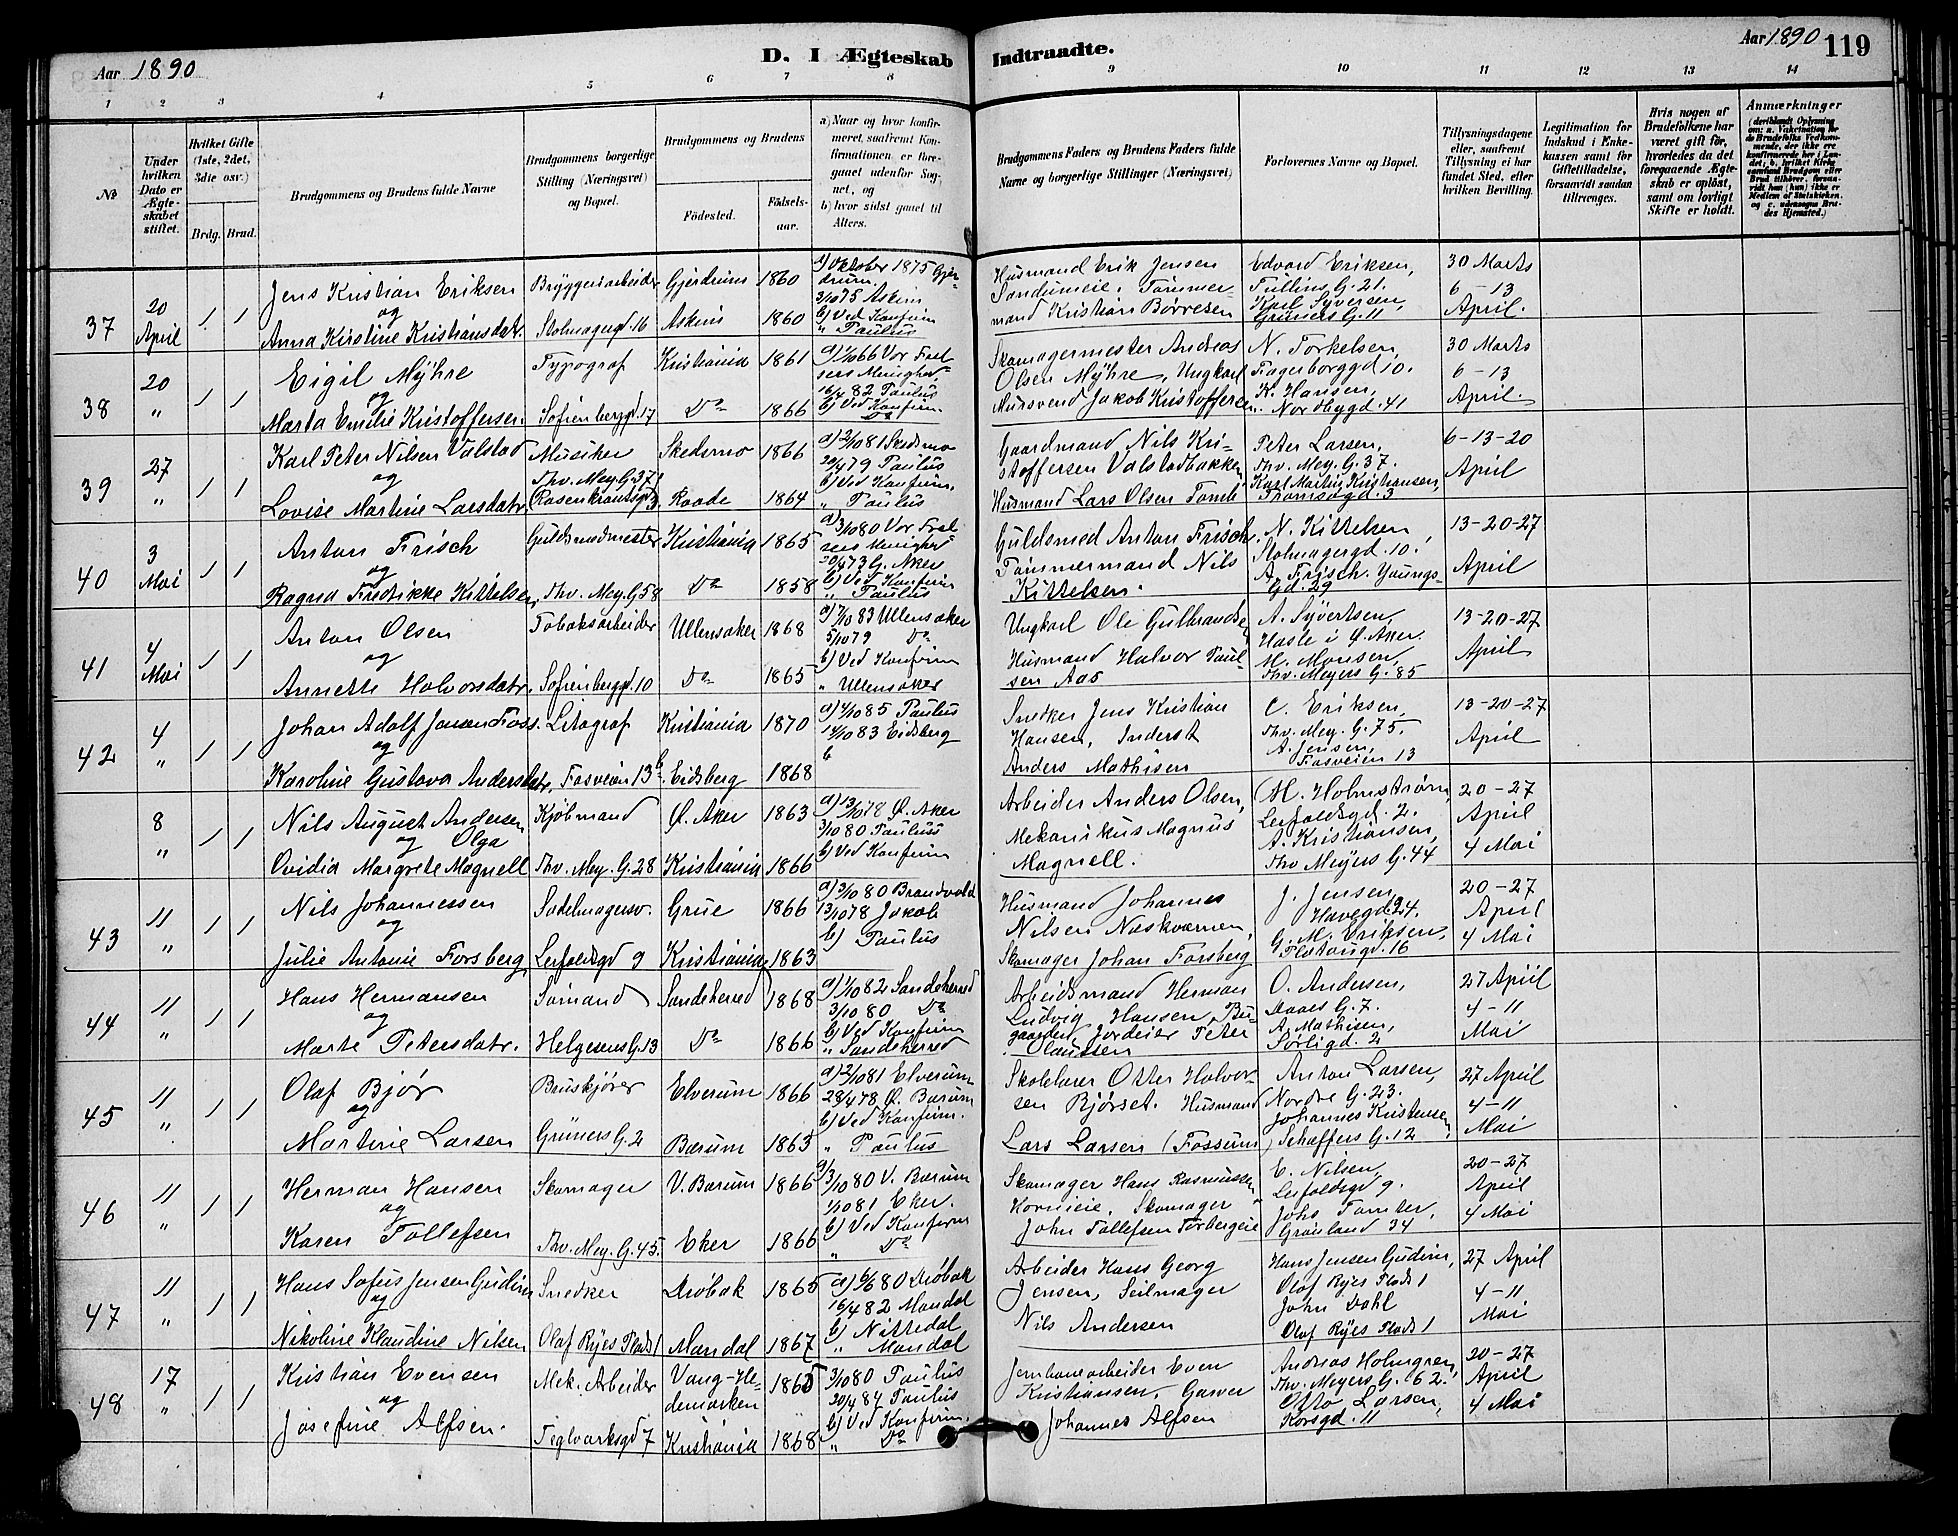 Aar 1890
D. I Ægteskab
Indtraadte.
Aar 1890 119
1 2 3 4 5 6 7 8 9 10 11 12 13 14
No
Under hvilken Dato er Ægteskabet stiftet.
Hvilket Gifte (1ste, 2det, 3die osv.)
Brdg. Brud.
Brudgommens og Brudens fulde Navne
Brudgommens borgerlige Stilling (Næringsvei) og Bopæl.
Brudgommens og Brudens
Fødested.
Fødselsaar.
a) Naar og hvor konfirmeret, saafremt Konfirmationen er foregaaet udenfor Sognet, og
b) hvor sidst gaaet til Alters.
Brudgommens Faders og Brudens Faders fulde Navne og borgerlige Stillinger (Næringsvei)
Forlovernes Navne og Bopæl.
Tillysningsdagene eller, saafremt Tillysning ei har fundet Sted, efter hvilken Bevilling.
Legitimation for Indskud i Enkekassen samt for Giftetilladelse, forsaavidt saadan tiltrænges.
Hvis nogen af Brudefolkene har været gift før, hvorledes da det foregaaende Ægteskab er opløst, samt om lovligt Skifte er holdt.
Anmærkninger
37 20 April 1 1
Jens Kristian Eriksen og Anna Kirstine Kristiansdatr.
Bryggeriarbeider Stolmagergd. 16
Gjerdrum 1860
Askim 1860
a) Oktober 1875 Gjerdrum.
3/10 75 Askim
b) Ved Konfirm
" Paulus
Husmand Erik Jensen Sandumeie. Tømmermand Kristian Børresen
Edvard Eriksen, Tullins G. 21.
Karl Syversen, Grüners G. 11
30 Marts 6-13 April.
38 20 " 1 1
Eigil Myhre og Marta Emilie Kristoffersen.
Typograf Sofienberggd. 17
Kristiania 1861
Do 1866
Vor Frelsers Menighed
16/4 82 Paulus
b) Ved Konfirm.
Do
Skomagermester Andreas Olsen Myhre, Ungkarl Mursvend Jakob Kristoffersen.
N. Torkelsen, Fagerborggd 10.
K. Hansen, Nordbygd. 41
30 Marts 6-13 April.
39 27 " 1 1
Karl Peter Nilsen Valstad og Lovise Martine Larsdatr.
Musiker Thv. Mey. G. 37 Rosenkrantzgd 3.
Skedsmo 1866
Raade 1864
a) 2/10 81 Skedsmo
20/4 79 Paulus
b) Ved Konfirm.
" Paulus
Gaardmand Nils Kristoffersen Valstadbakken
Husmand Lars Olsen Tomb
Peter Larsen, Thv. Mey. G. 37.
Karl Martin Kristiansen, Tromsøgd. 3
6-13-20 April
40 3 Mai 1 1
Anton Frisch og Ragna Fredrikke Kittelsen,
Guldsmedmester Thv. Mey. G. 58
Kristiania 1865
Do 1858
a) 3/10 80 Vor Frelsers Menighed
20/4 73 G. Aker
b) Ved Konfirm
" Paulus
Guldsmed Anton Frisch. Tømmermand Nils Kittelsen.
N. Kittelsen, Stolmagergd. 10.
A. Frisch. Youngs-Gd. 29
13-20-27 April
41 4 Mai 1 1
Anton Olsen og Annette Halvorsdatr.
Tobaksarbeider Sofienberggd. 10
Ullensaker 1868
Do 1865
a) 7/10 83 Ullensaker
5/10 79 Do
b) Ved Konfirm
" Ullensaker
Ungkarl Ole Gulbrandsen
Husmand Halvor Paulsen Aas
A. Syvertsen, Hasle i Ø. Aker.
M. Monsen, Thv. Meyers G. 85
13-20-27 April
42 4 " 1 1
Johan Adolf Jensen Foss. og Karoline Gustava Andersdatr,
Litograf Fosveien 13 b.
Kristiania 1870
Eidsberg 1868
a) 4/10 85 Paulus
14/10 83 Eidsberg
b
Snedker Jens Kristian Hansen, Inderst Anders Mathisen
C. Eriksen, Thv. Mey. G. 75.
A. Jensen, Fosveien 13
13-20-27 April
8 " 1 1
Nils August Andersen og Olga Ovidia Margrete Magnell
Kjøbmand Thv. Mey. G. 28
Ø. Aker 1863
Kristiania 1866
a) 13/10 78 Ø. Aker
3/10 80 Paulus
b) Ved Konfirm
Arbeider Anders Olsen, Mekanikus Magnus Magnell.
M. Holmstrøm, Leirfaldsgd. 2.
A. Kristiansen, Thv Meyers G. 44
20-27 April 4 Mai
43 11 " 1 1
Nils Johannessen og Julie Antonie Forsberg
Sadelmagersv. Leirfaldsgd 9
Grue 1866
Kristiania 1863
a) 3/10 80 Brandvold
13/10 78 Jakob
b) Paulus
Husmand Johannes Nilsen Næskværnen, Skomager Johan Forsberg
J. Jensen, Havegd. 24.
G. M. Eriksen, Tøstrupgd. 16
20-27 April 4 Mai
44 11 " 1 1
Hans Hermansen og Marte Petersdatr.
Sømand Helgesens G. 13
Sandeherred 1868
Do 1866
a) 1/10 82 Sandeherred
3/10 80 Do
b) Ved Konfirm
" Sandeherred
Arbeidsmand Herman Ludvig Hansen, Bugaarden, Jordeier Peter Claussen
O. Andersen, Daaes G. 7.
A. Mathisen, Sørligd. 2
27 April 4-11 Mai
45 11 " 1 1
Olaf Bjør og Martine Larsen
Bruskjører Grüners G. 2
Elverum 1866
Bærum 1863
a) 2/10 81 Elverum
28/4 78 Ø. Bærum
b) Ved Konfirm.
" Paulus
Skolelærer Otter Halvorsen Bjørset. Husmand Lars Larsen (Fossum)
Anton Larsen, Nordre G. 23.
Johannes Kristensen, Schaffers G. 12
27 April 4-11 Mai
46 11 " 1 1
Herman Hansen og Karen Tollefsen
Skomager Thv. Mey. G. 45.
V. Bærum 1866
Eker 1866
a) 3/10 80 V. Bærum
1/10 81 Eker.
b) Ved Konfirm
" Do
Skomager Hans Rasmussen Korneie, Skomager John Tollefsen Torbergeie
E. Nilsen, Leirfaldsgd 9.
Johs Tomter, Grønland 34
20-27 April 4 Mai
47 11 " 1 1
Hans Sofus Jensen Gudim og Nikoline Klaudine Nilsen
Snedker Olaf Ryes Plads 1
Drøbak 1865
Mandal 1867
a) 6/6 80 Drøbak
16/4 82 Mandal
b) Nittedal
" Mandal
Arbeider Hans Georg Jensen, Seilmager Nils Andersen
Hans Jensen Gudim, Olaf Ryes Plads 1
John Dahl Olaf Ryes Plads 1
27 April 4-11 Mai
48 17 " 1 1
Kristian Evensen og Josefine Alfsen.
Mek. Arbeider Teglværksgd 7
Vang-Hedemarken 1865
Kristiania 1868
3/10 80 Paulus
20/4 84 Paulus
b) Ved Konfirm.
" Do
Jernbanearbeider Even Kristiansen, Garver Johannes Alfsen
Andreas Holmgren, Thv. Meyers G. 62.
Otto Larsen, Korsgd. 11
20-27 April 4 Mai